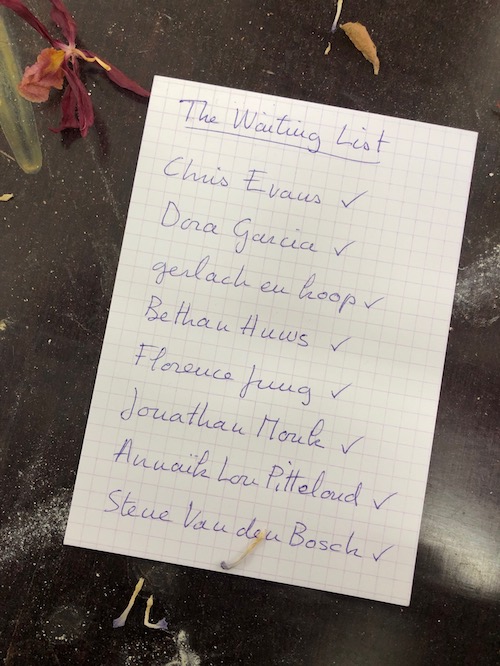 The Waiting List
Chris Evans ✓
Dora Garcia ✓
gerlach en koop ✓
Bethan Huws ✓
Florence Jung ✓
Jonathan Monk ✓
Annaïk Lou Pitteloud ✓
Steve Van den Bosch ✓